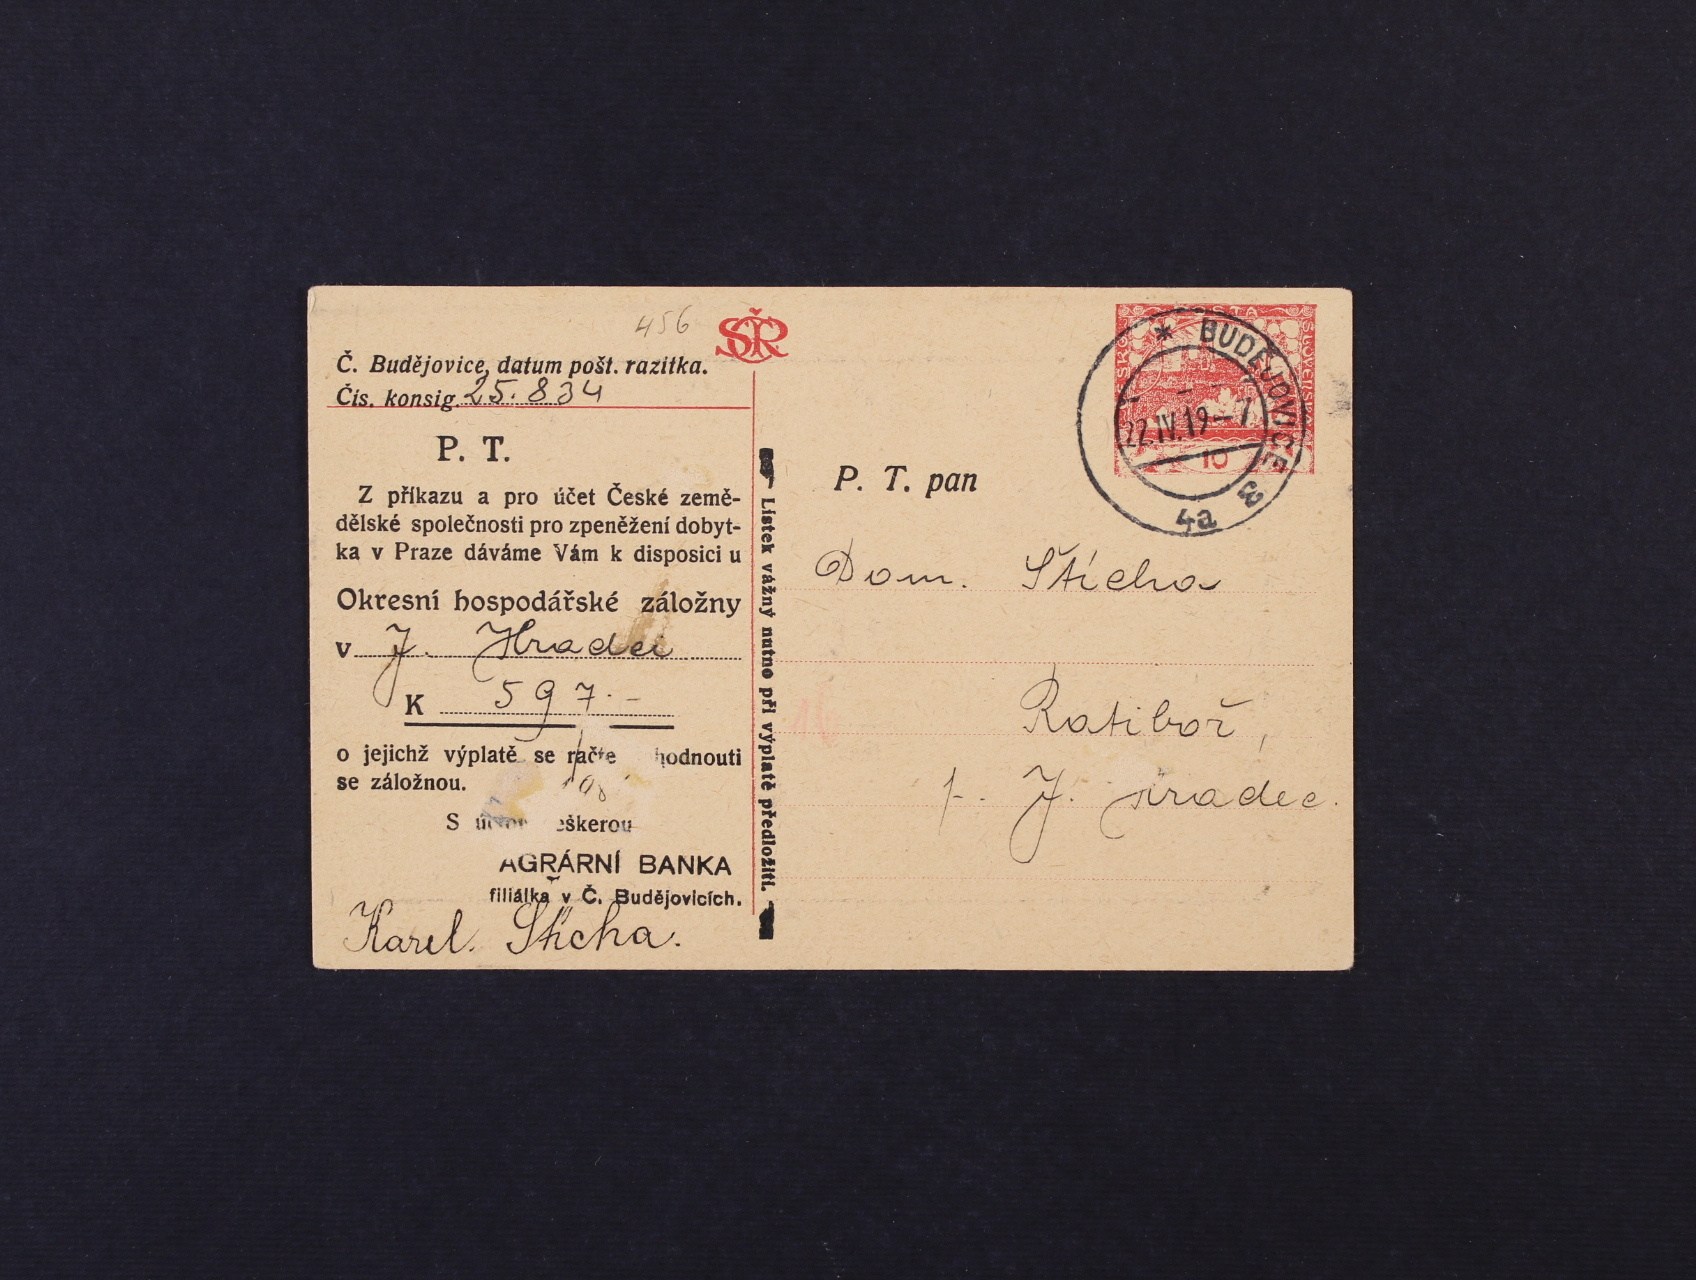 456
SČR
Č. Budějovice, datum pošt. razítka.
Čís. konsig. 25.834
P. T.
Z příkazu a pro účet České země-
dělské společnosti pro zpeněžení dobyt-
ka v Praze dáváme Vám k disposici u
Okresní hospodářské záložny
v J. Hradci
K 597.-
o jejichž výplatě se račte hodnouti
se záložnou.
S eškerou
AGRÁRNÍ BANKA
filiálka v Č. Budějovicích.
Karel Stícha.
Lístek vážný nutno při výplatě předložiti.
BUDĚJOVICE
22.IV.19-7
4a
10
P. T. pan
Dom. Stícha
Ratiboř,
p. J. Hradec.